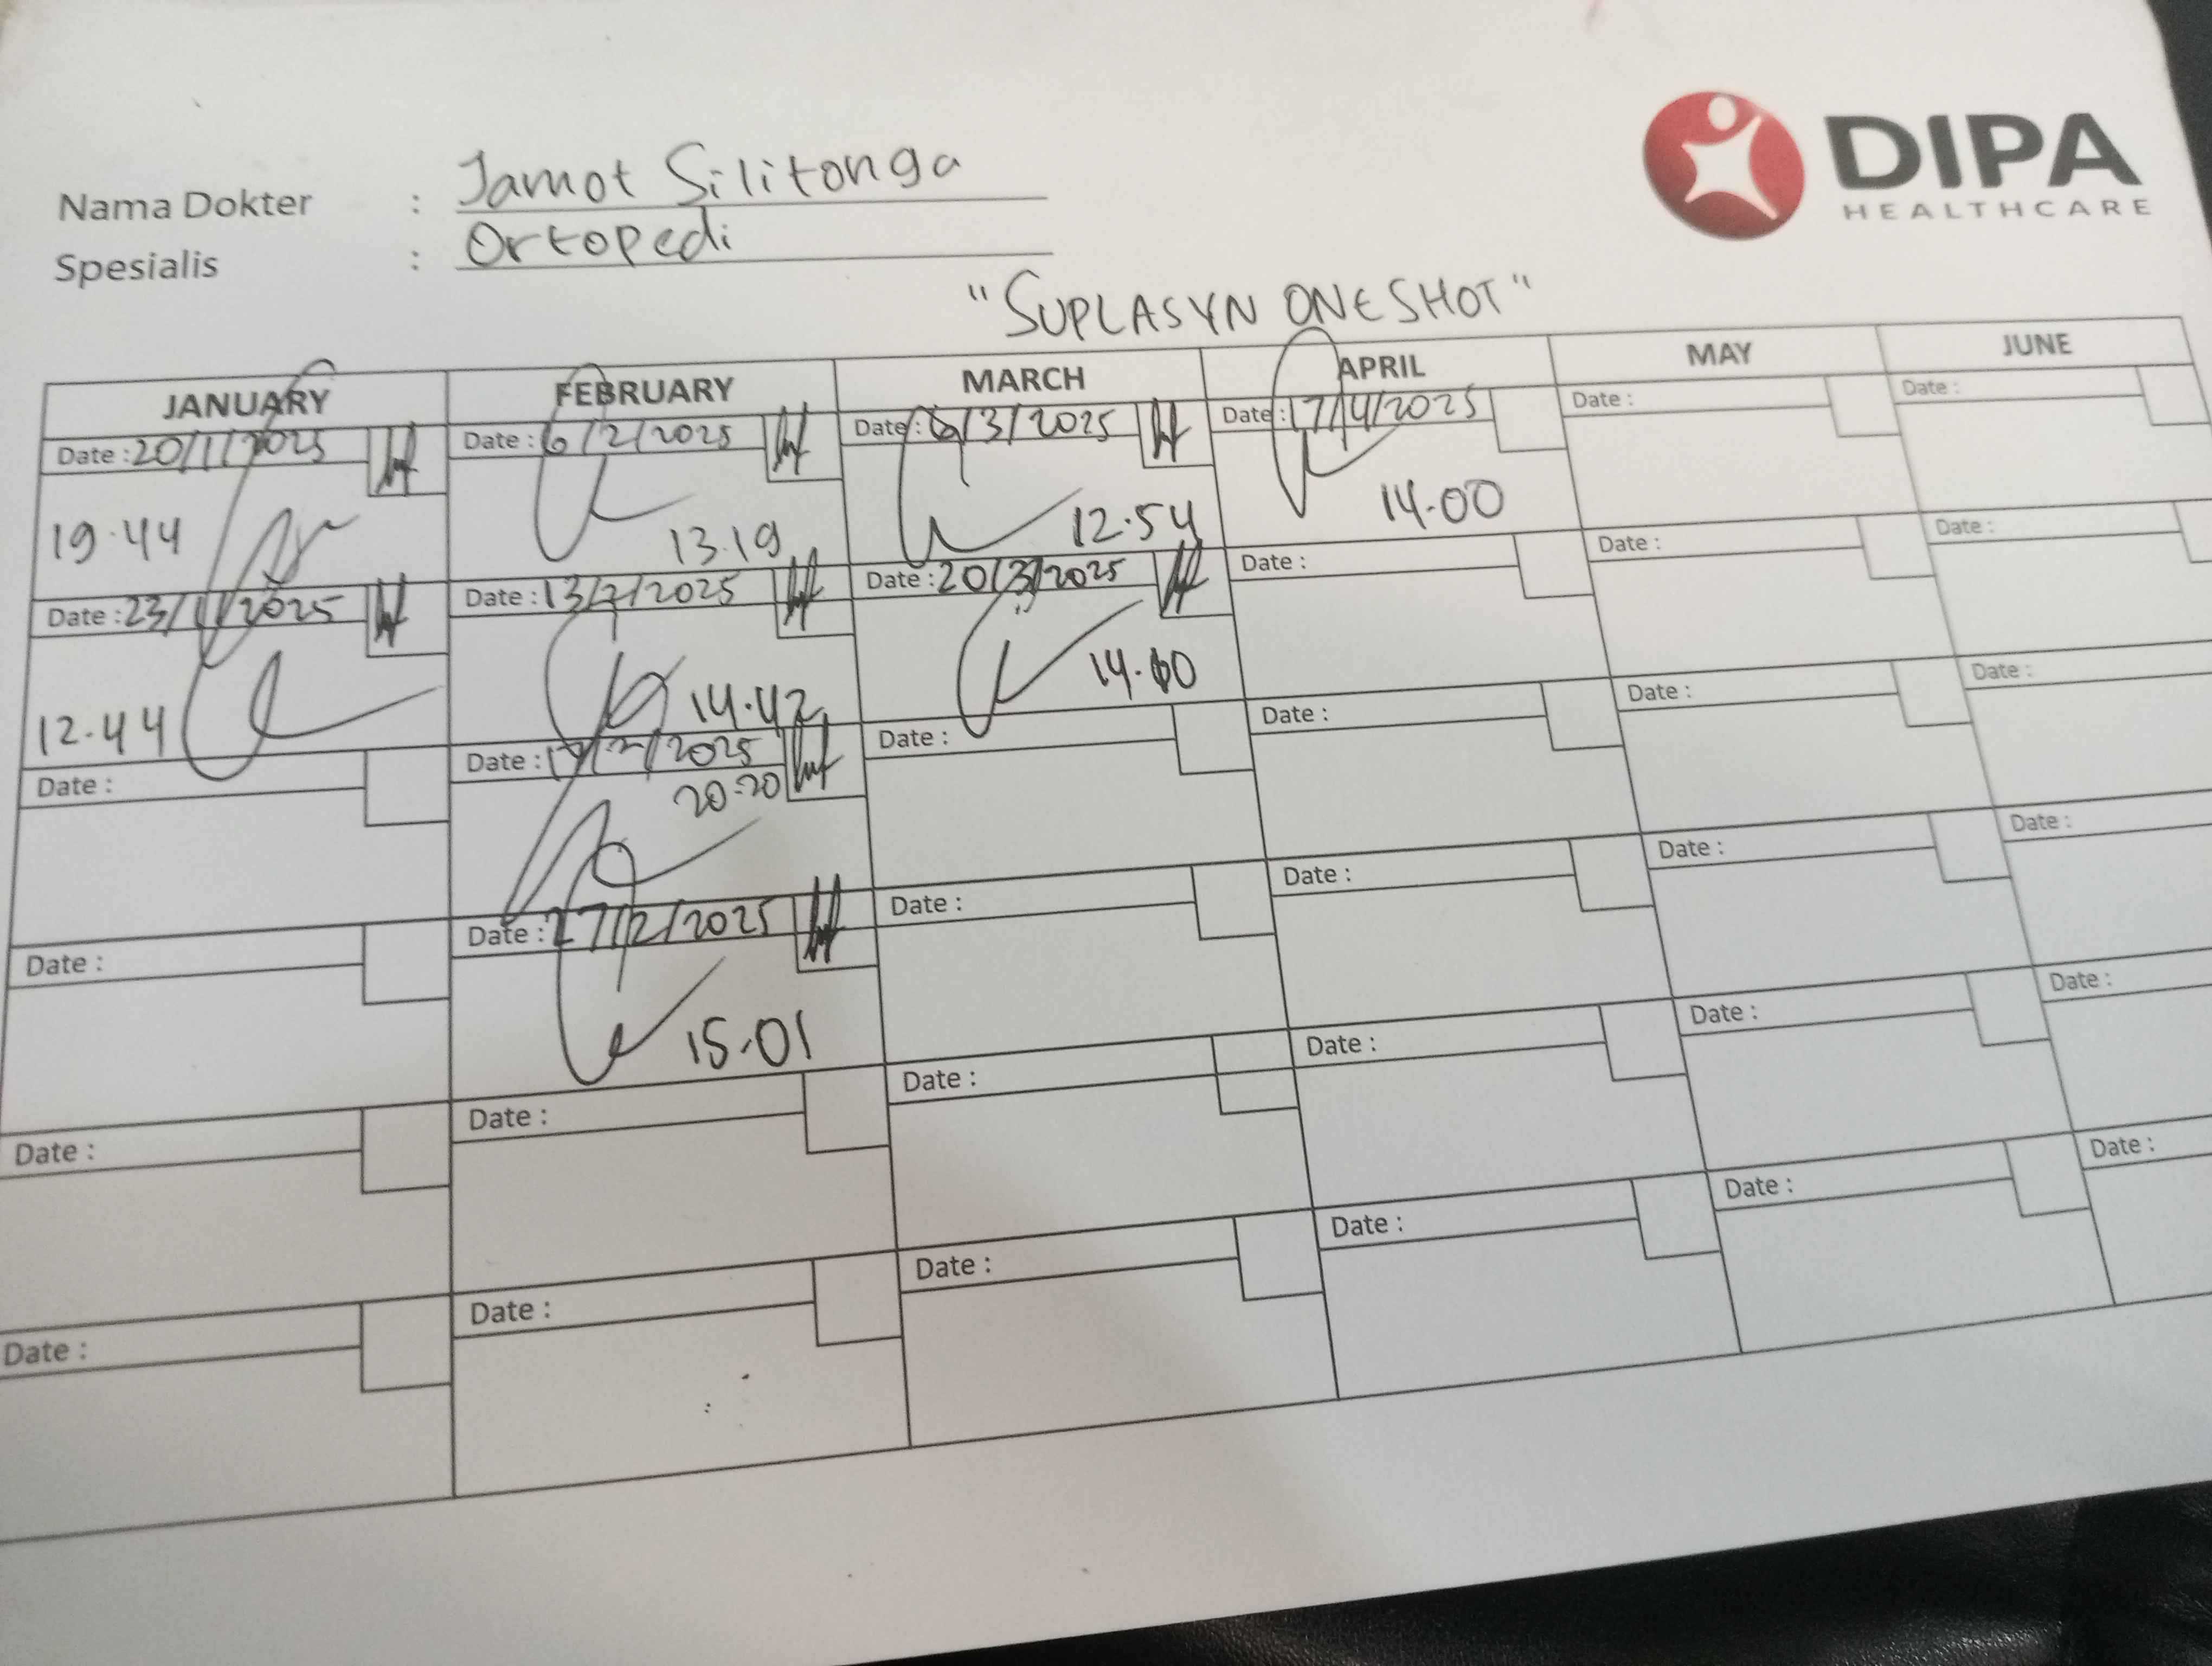 DIPA
HEALTHCARE
Nama Dokter : Jamot Silitonga
Spesialis : Ortopedi
"SUPLASYN ONE SHOT"
JANUARY FEBRUARY MARCH APRIL MAY JUNE
Date : 20/1/2025 Date : 6/2/2025 Date : 6/3/2025 Date : 17/4/2025 Date : Date :
19.44 13.19 12.54 14.00
Date : 23/1/2025 Date : 13/2/2025 Date : 20/3/2025 Date : Date : Date :
12.44 14.42 14.00
Date : Date : /2/2025 Date : Date : Date : Date :
20.20
Date : Date : 27/2/2025 Date : Date : Date : Date :
15.01
Date : Date : Date : Date : Date : Date :
Date : Date : Date : Date : Date : Date :